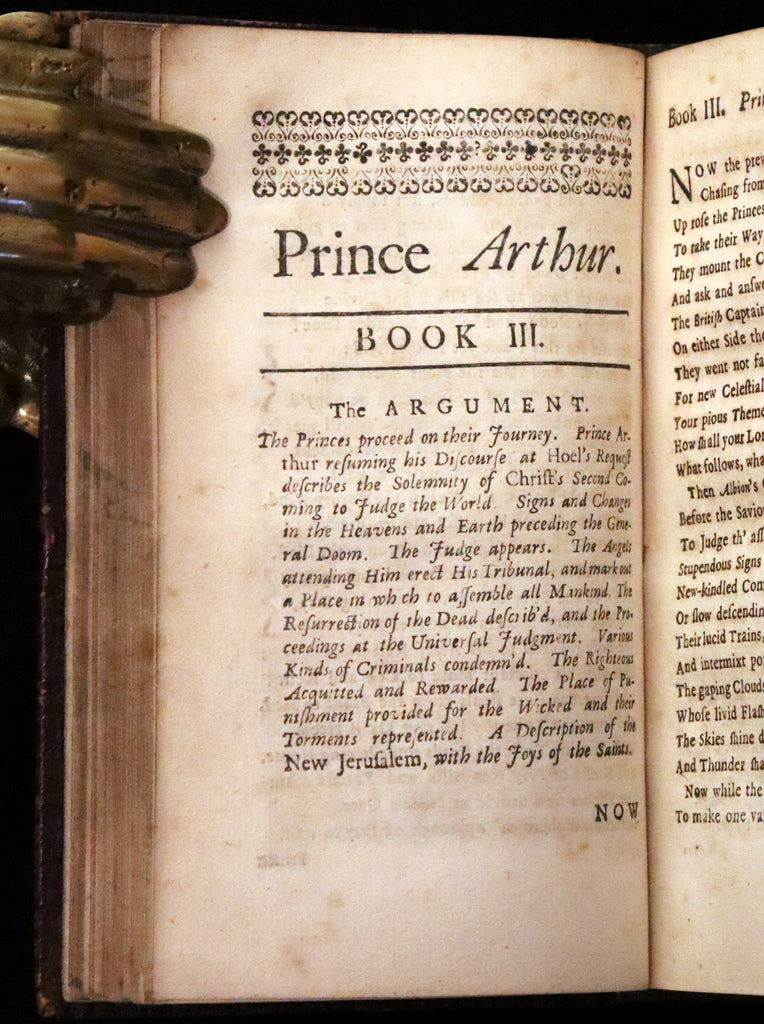 Prince Arthur.
BOOK III.
The ARGUMENT.
The Princes proceed on their Journey. Prince Ar-
thur reſuming his Diſcourſe at Hoel's Requeſt
deſcribes the Solemnity of Chriſt's Second Co-
ming to Judge the World. Signs and Changes
in the Heavens and Earth preceding the Gene-
ral Doom. The Judge appears. The Angels
attending Him erect His Tribunal, and mark out
a Place in wh ch to aſſemble all Mankind. The
Reſurrection of the Dead deſcrib'd, and the Pro-
ceedings at the Univerſal Judgment. Various
Kinds of Criminals condemn'd. The Righteous
Acquitted and Rewarded. The Place of Pu-
niſhment provided for the Wicked and their
Torments repreſented. A Deſcription of the
New Jeruſalem, with the Joys of the Saints.
NOW
Book III. Pri
NOW the prev
Chaſing from
Up roſe the Princes
To take their Way
They mount the C
And ask and anſwe
The Britiſh Captain
On either Side the
They went not fa
For new Celeſtial
Your pious Theme
How ſhall your Lor
What follows, wha
Then Albion's
Before the Saviou
To Judge th' aſſ
Stupendous Signs
New-kindled Com
Or ſlow deſcendin
Their lucid Trains,
And intermixt po
The gaping Clouds
Whoſe livid Flaſh
The Skies ſhine d
And Thunder ſha
Now while the
To make one va